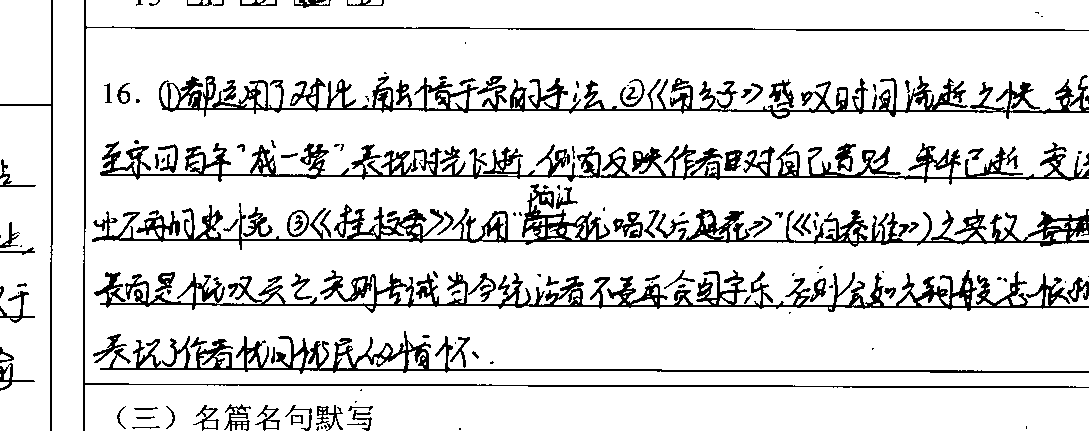 16. ①都运用了对比、寓情于景的手法.②《南乡子》感叹时间流逝之快,
至宋四百年"成一梦",表现时光飞逝,侧面反映作者自对自己 年华已逝,变
业不再的悲慨.③《桂枝香》化用"隔江犹唱《后庭花》"(《泊秦淮》)之典故,
表面是慨叹六朝 实则告诫当今统治者不要再贪图享乐,否则会如六朝般"悲恨
表现了作者忧国忧民的情怀.
(三)名篇名句默写